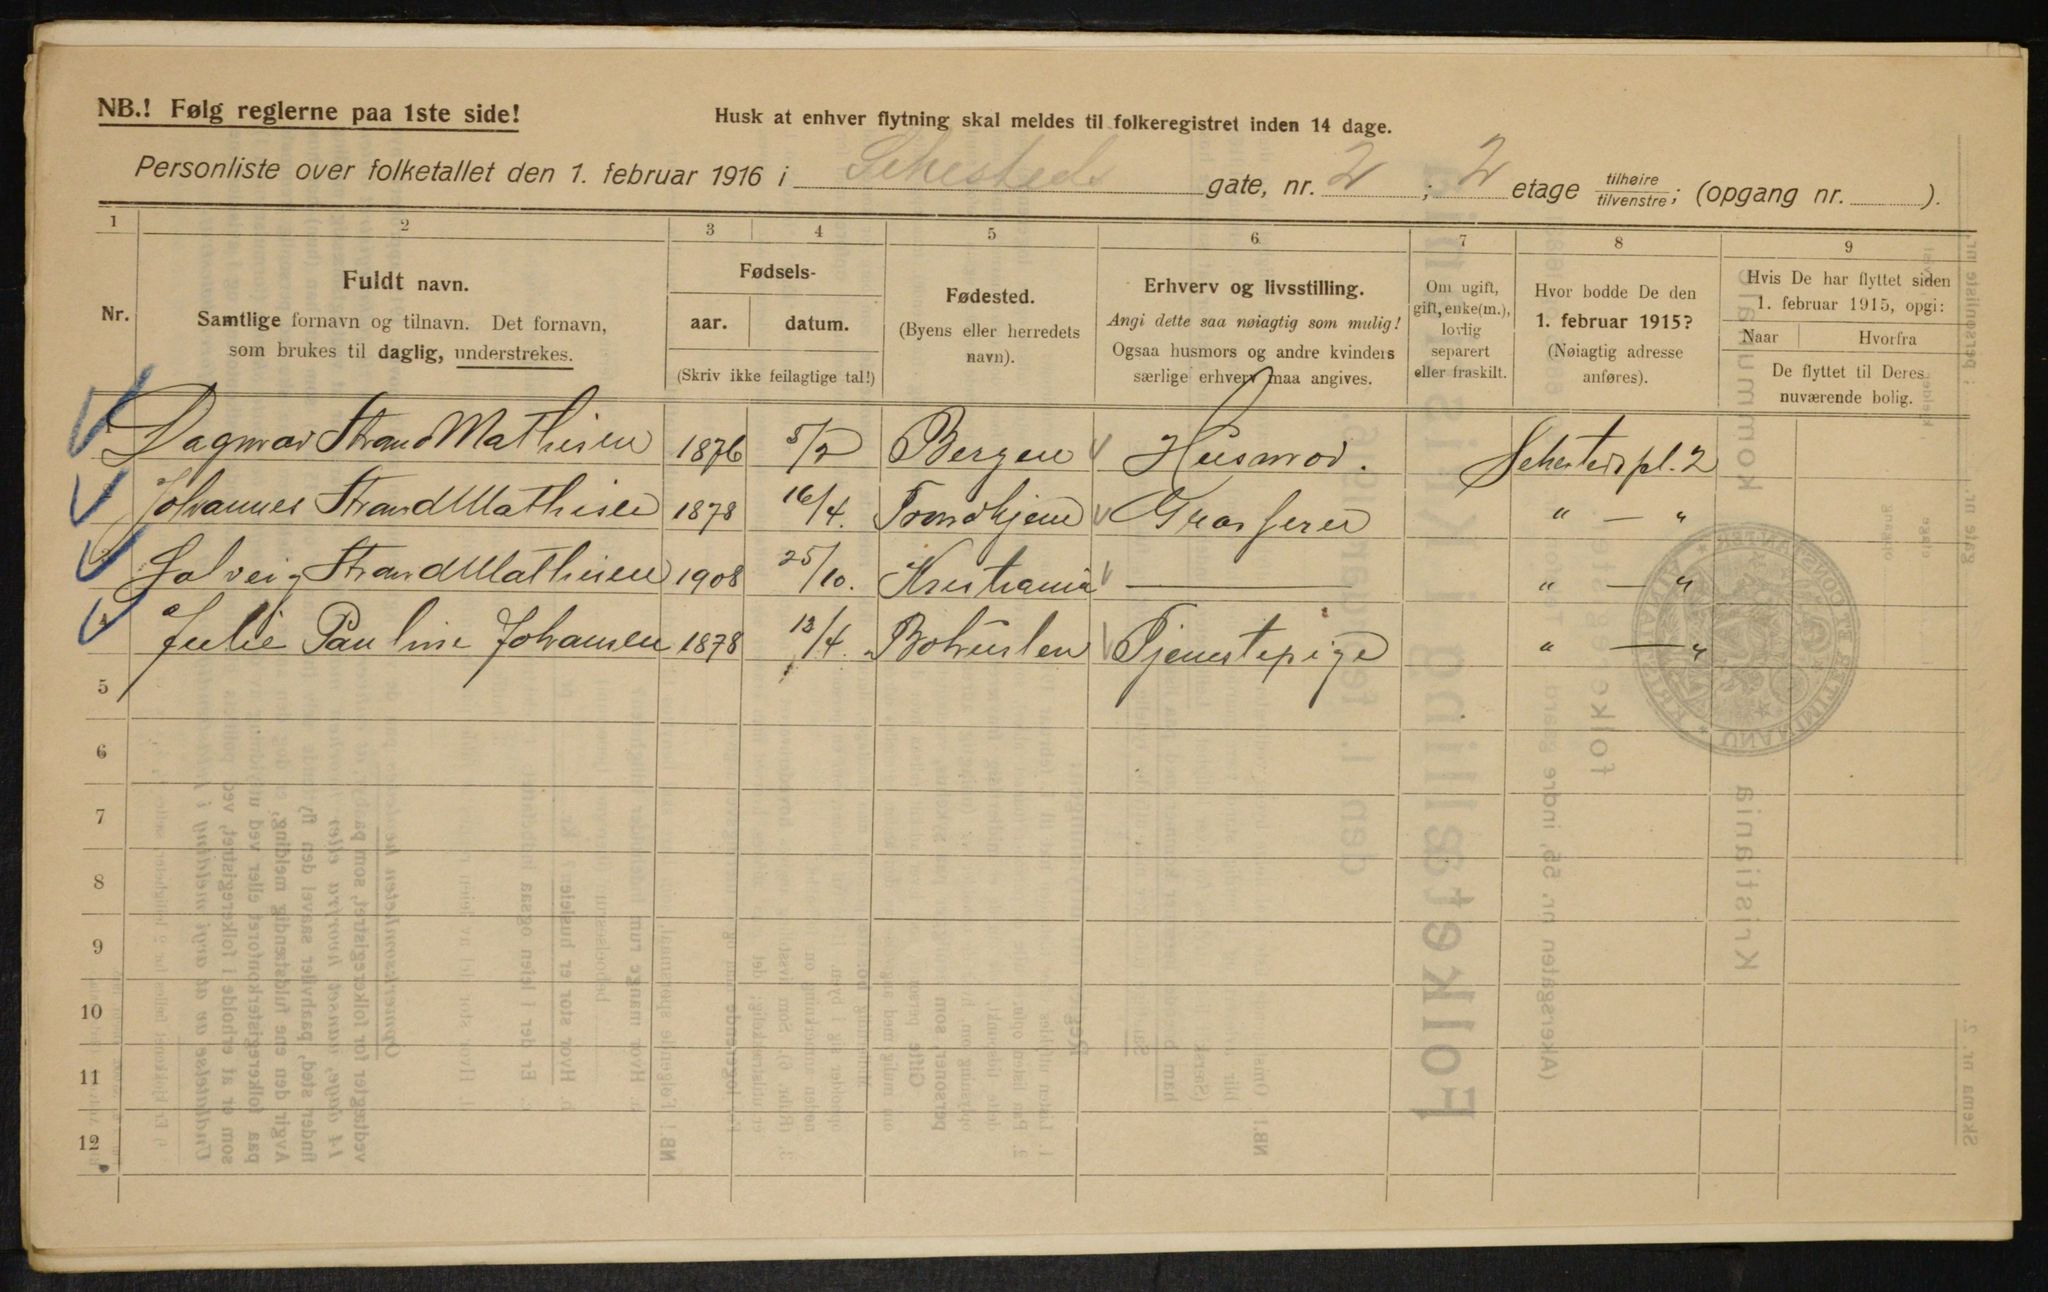 NB.! Følg reglerne paa 1ste side!
Husk at enhver flytning skal meldes til folkeregistret inden 14 dage.
Personliste over folketallet den 1. februar 1916 i Sehesteds gate, nr. 2 ; 2 etage tilhøire tilvenstre ; (opgang nr. ).
1 2 3 4 5 6 7 8 9
Nr.
Fuldt navn.
Samtlige fornavn og tilnavn. Det fornavn,
som brukes til daglig, understrekes.
Fødsels-
aar. datum.
(Skriv ikke feilagtige tal!)
Fødested.
(Byens eller herredets
navn).
Erhverv og livsstilling.
Angi dette saa nøiagtig som mulig!
Ogsaa husmors og andre kvinders
særlige erhverv maa angives.
Om ugift,
gift, enke(m.),
lovlig
separert
eller fraskilt.
Hvor bodde De den
1. februar 1915?
(Nøiagtig adresse
anføres).
Hvis De har flyttet siden
1. februar 1915, opgi:
Naar Hvorfra
De flyttet til Deres
nuværende bolig.
Dagmar Strand Mathisen 1876 5/2 Bergen Husmor. Sehesteds pl. 2
Johannes Strand Mathisen 1878 16/4. Trondhjem Grosserer " — "
Solveig Strand Mathisen 1908 25/10. Kristiania — " — "
4 Julie Pauline Johansen 1878 13/4. Bohuslen Tjenestepige " — "
5
6
7
8
9
10
11
12